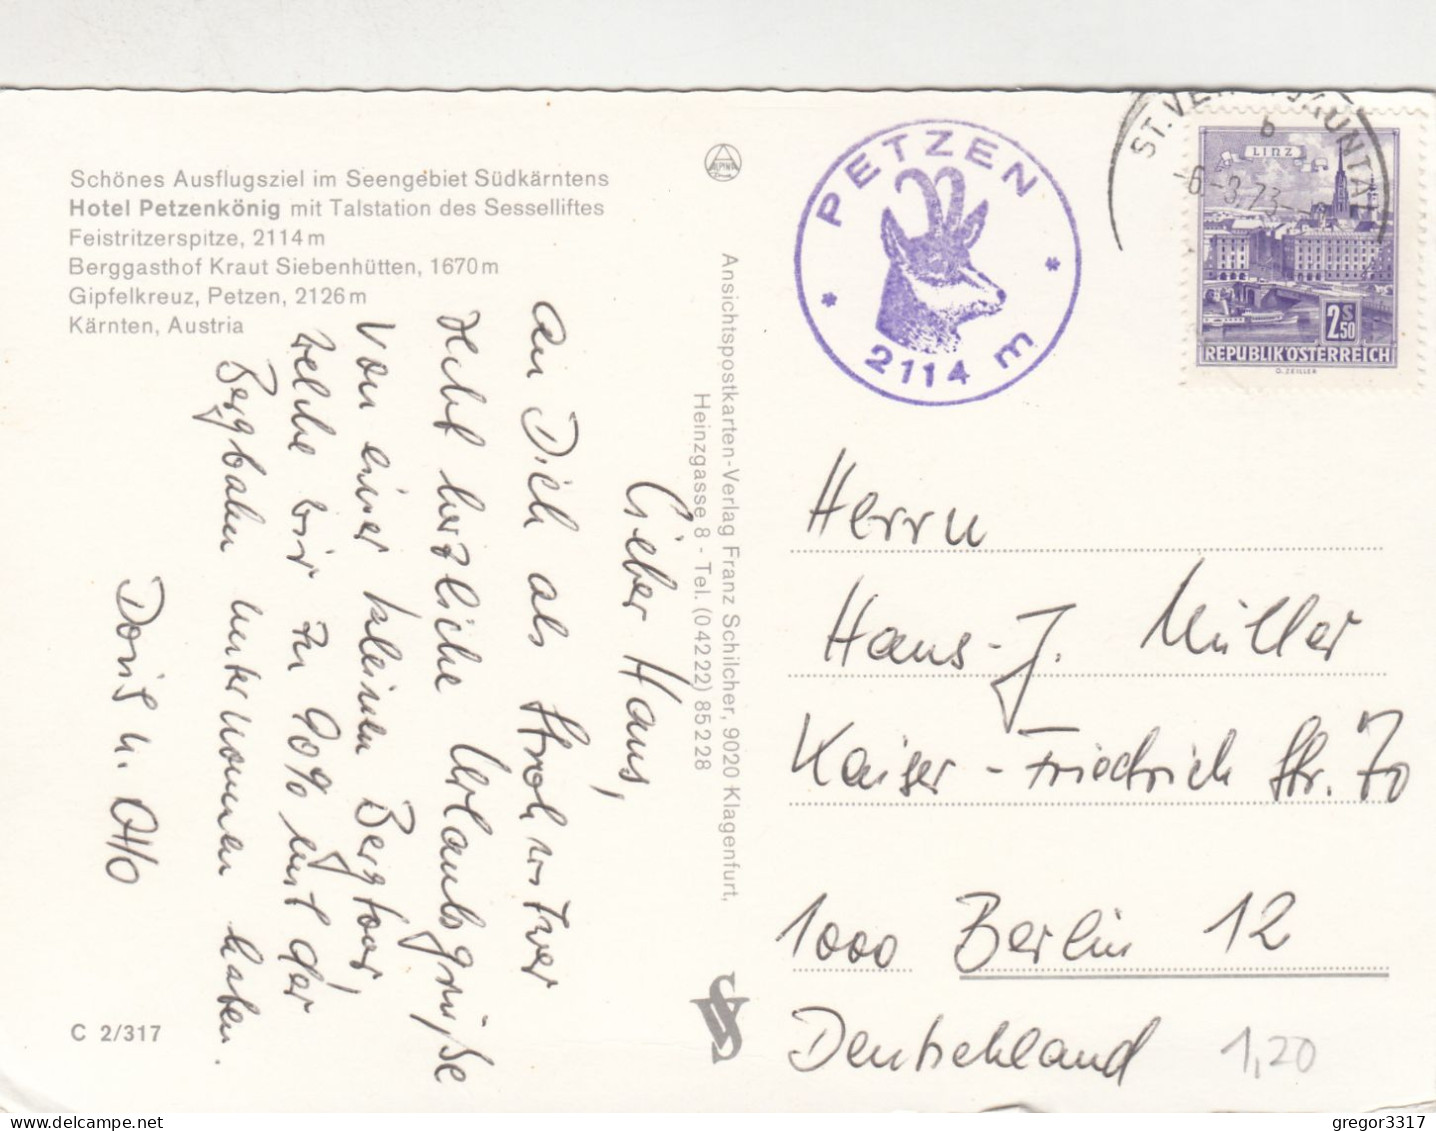 Schönes Ausflugsziel im Seengebiet Südkärntens
Hotel Petzenkönig mit Talstation des Sesselliftes
Feistritzerspitze, 2114 m
Berggasthof Kraut Siebenhütten, 1670 m
Gipfelkreuz, Petzen, 2126 m
Kärnten, Austria
Lieber Haus,
an Dich als Strohwitwer
recht herzliche Urlaubsgrüße
von einer kleinen Bergtour,
welche wir zu 90% mit der
Bergbahn unternommen haben.
Doris u. Otto
C 2/317
Ansichtspostkarten-Verlag Franz Schilcher, 9020 Klagenfurt,
Heinzgasse 8 - Tel. (0 42 22) 85 2 28
PETZEN
* *
2114 m
ST. VEIT JAUNTAL
b
-6.-8.73-
LINZ
2 S 50
REPUBLIK ÖSTERREICH
O. ZEILLER
Herrn
Hans-J. Müller
Kaiser-Friedrich Str. 70
1000 Berlin 12
Deutschland
1,20
gregor3317